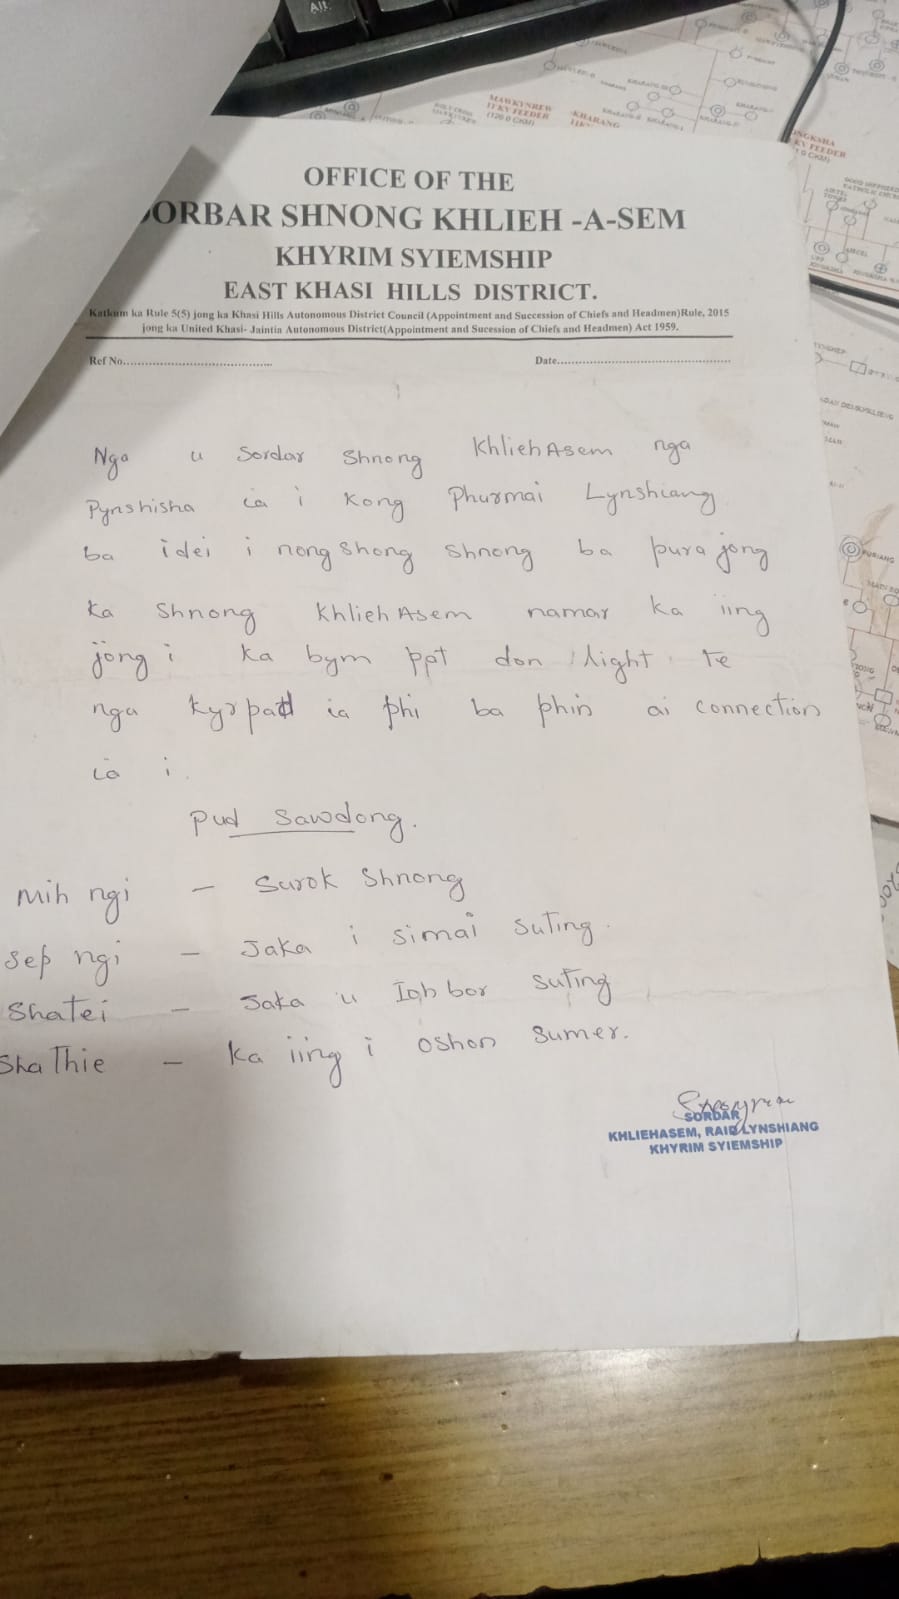 Alt
MAWKYNREW
11 KV FEEDER
(120.0 CKM)
KHARANG
OFFICE OF THE
DORBAR SHNONG KHLIEH -A-SEM
KHYRIM SYIEMSHIP
EAST KHASI HILLS DISTRICT.
Katkum ka Rule 5(5) jong ka Khasi Hills Autonomous District Council (Appointment and Succession of Chiefs and Headmen)Rule, 2015
jong ka United Khasi- Jaintia Autonomous District(Appointment and Sucession of Chiefs and Headmen) Act 1959.
Ref No........................................ Date....................................................
Nga u Sordar Shnong KhliehAsem nga
Pynshisha ia i Kong Phurmai Lynshiang
ba idei i nongshong shnong ba pura jong
ka Shnong KhliehAsem namar ka iing
jong i ka bym pat don light te
nga kyrpad ia phi ba phin ai connection
ia i.
Pud Sawdong.
Mih ngi - Surok Shnong
Sep ngi - Jaka i Simai Suting.
Shatei - Jaka u Iohbor Suting
ShaThie - Ka iing i Oshon Sumer.
SORDAR
KHLIEHASEM, RAID LYNSHIANG
KHYRIM SYIEMSHIP